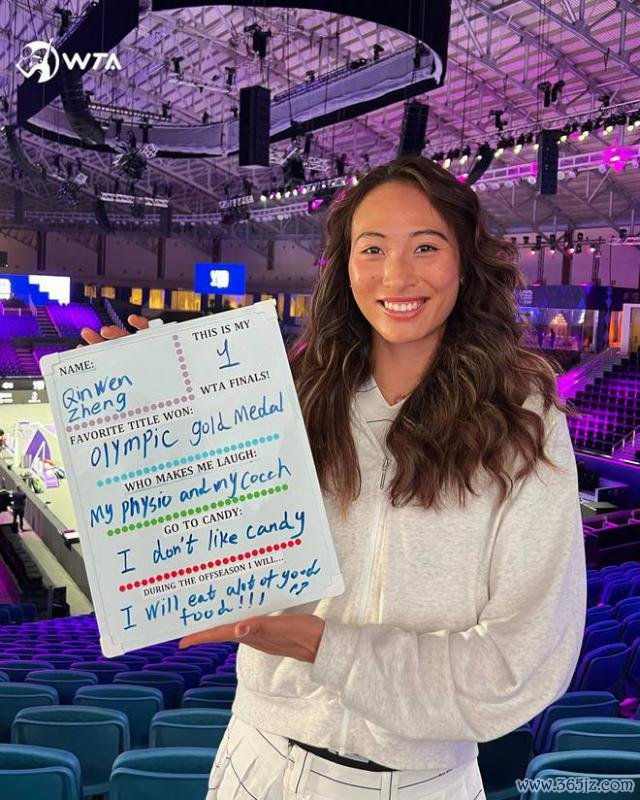 WTA
NAME:
THIS IS MY
Qinwen
Zheng
1
WTA FINALS!
FAVORITE TITLE WON:
Olympic gold Medal
WHO MAKES ME LAUGH:
My physio and my Cocch
GO TO CANDY:
I don't like candy
DURING THE OFFSEASON I WILL...
I will eat alot of good
food!!!
www.365jz.com